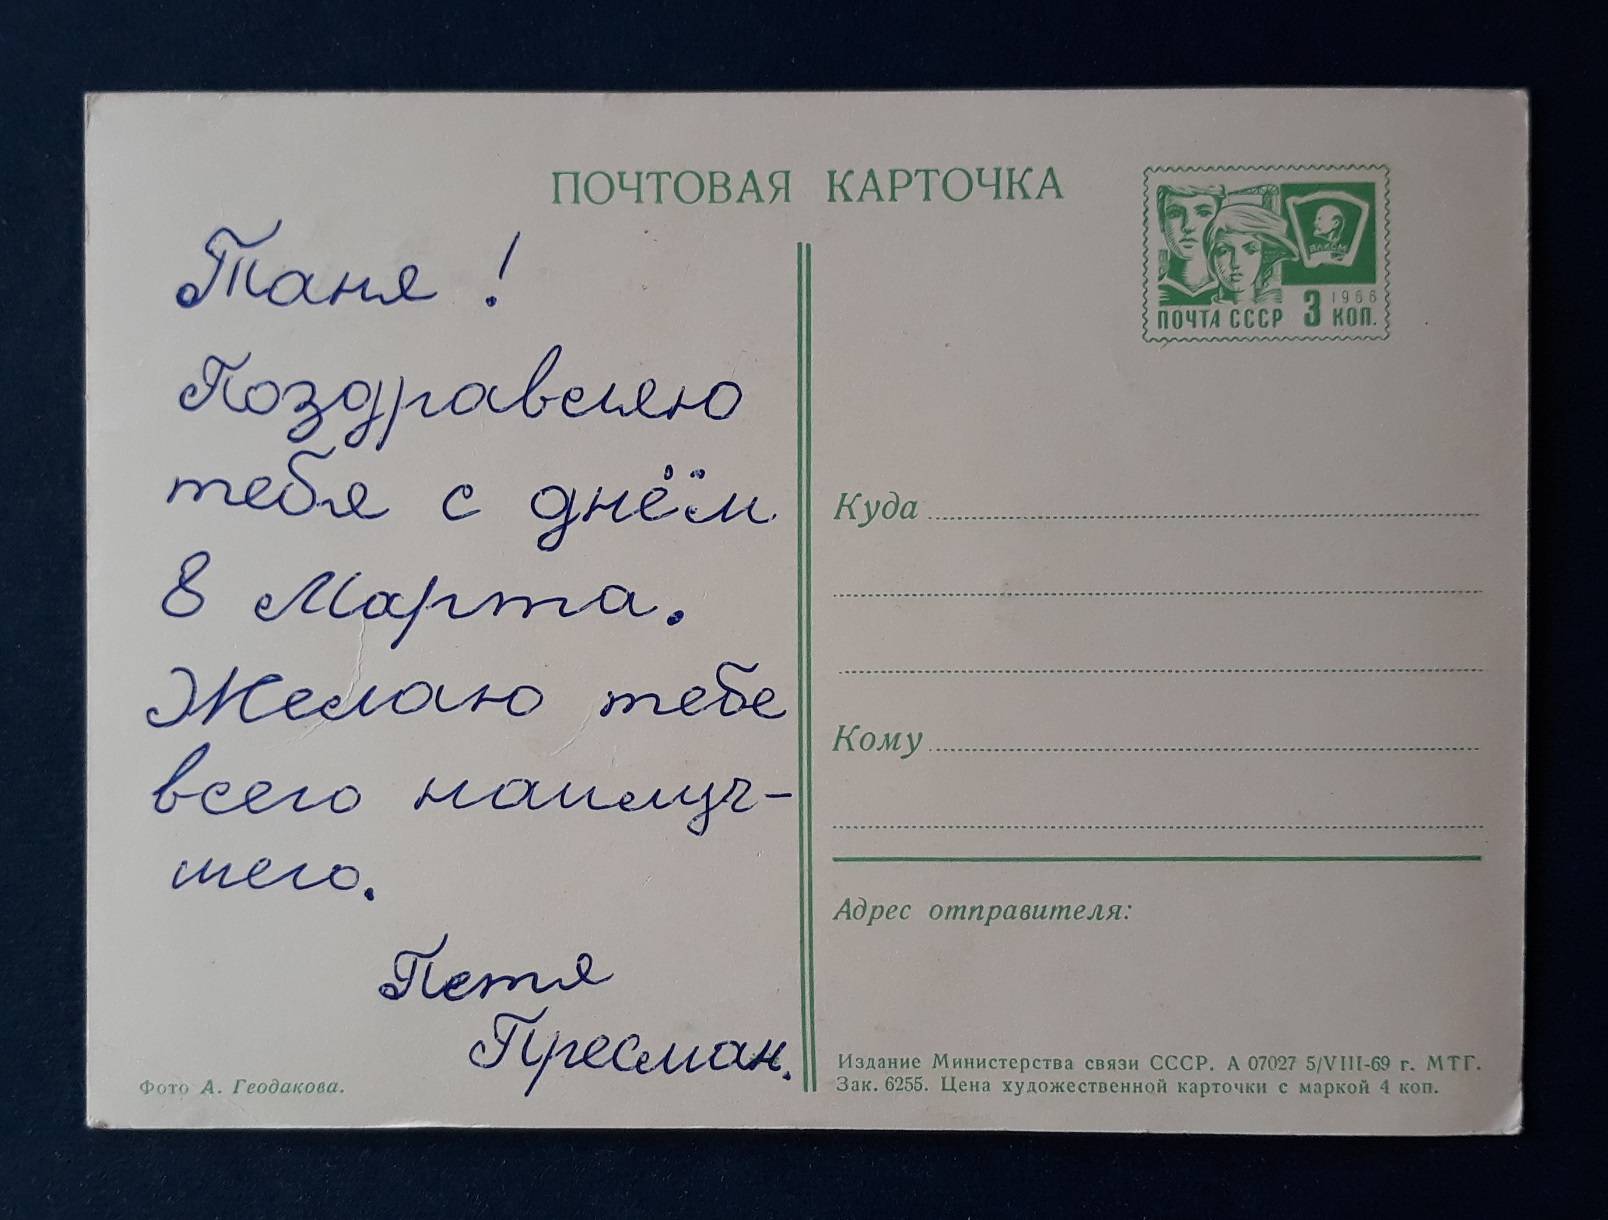 ПОЧТОВАЯ КАРТОЧКА
ВЛКСМ
1966
ПОЧТА СССР 3 КОП.
Таня!
Поздравляю
тебя с днём
8 Марта.
Желаю тебе
всего наилуч-
шего.
Петя
Пресман.
Фото А. Геодакова.
Куда
Кому
Адрес отправителя:
Издание Министерства связи СССР. А 07027 5/VIII-69 г. МТГ.
Зак. 6255. Цена художественной карточки с маркой 4 коп.